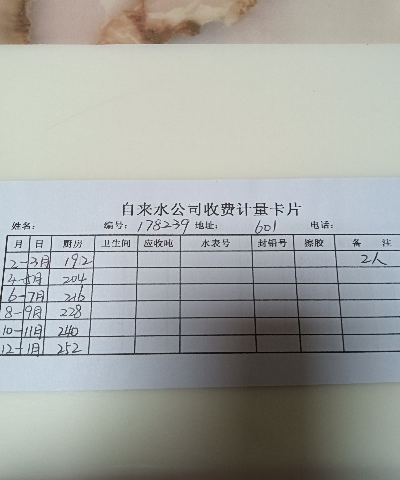 自来水公司收费计量卡片
姓名： 编号：178239 地址： 601 电话：
月 日 厨房 卫生间 应收吨 水表号 封铅号 擦胶 备 注
2-3月 192 2人
4-5月 204
6-7月 216
8-9月 228
10-11月 240
12-1月 252